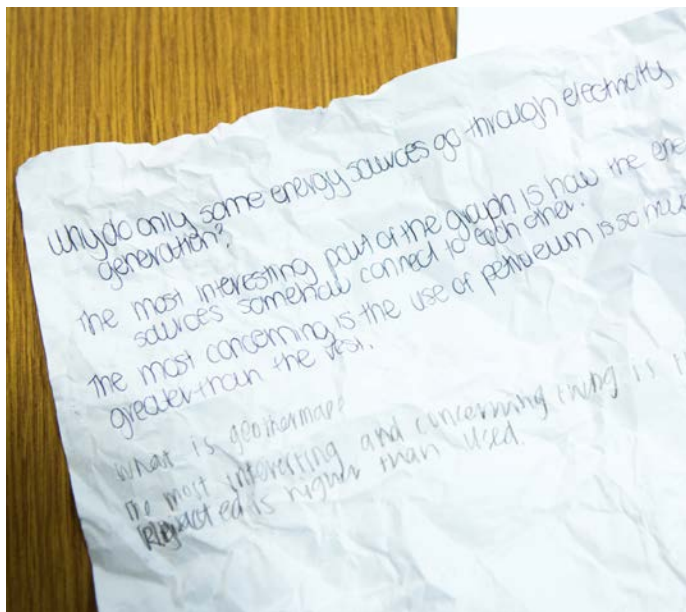 Why do only some energy sources go through electricity
generation?
The most interesting part of the graph is how the ene
sources somehow connect to each other.
The most concerning is the use of petroleum is so muc
greater than the rest.
What is geothermap?
The most interesting and concerning thing is th
is higher than used.